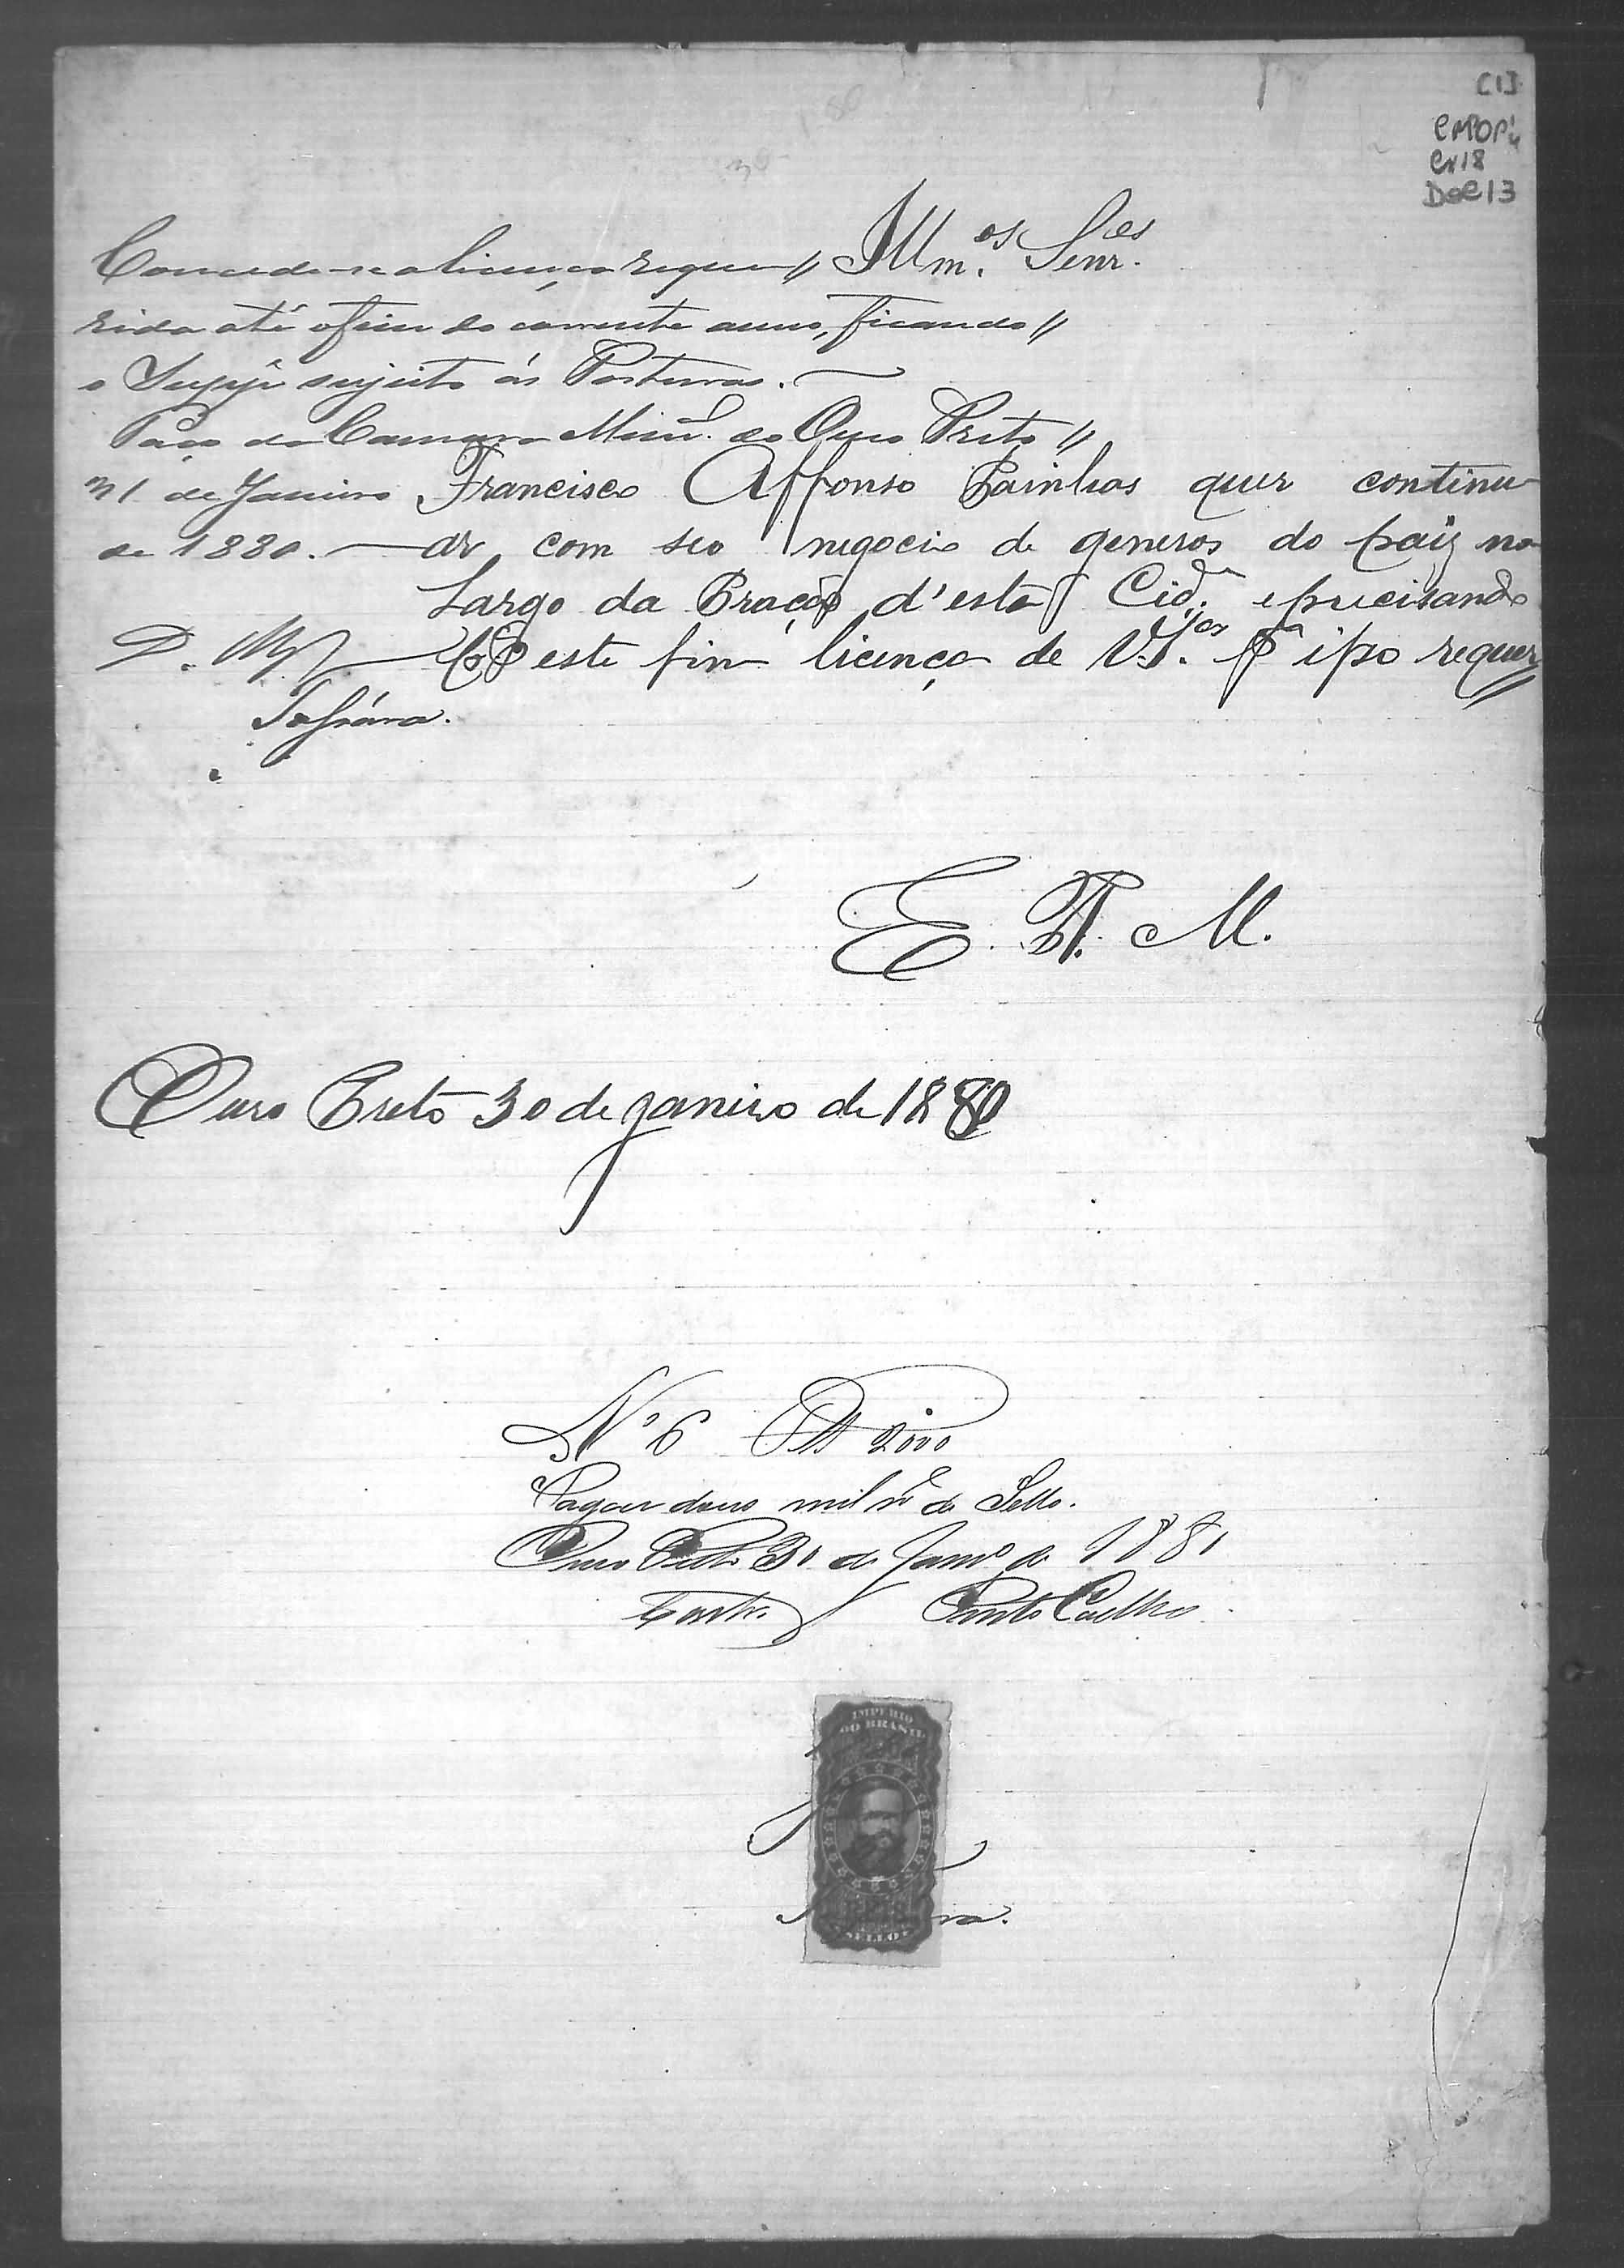 C13
CMOP
Cx18
Doc 13
Illm.os Senr.es
Concede-se a licença reque//
rida até o fim do corrente anno, ficando//
o Suppe sujeito ás Posturas.
Paço da Camara Munl. do Ouro Preto//
31 de Janeiro
de 1880.
Francisco Affonso Painhas quer continu
ar com seo negocio de generos do paiz no
Largo da Praça d'esta Cid.e e precisando
pa este fim licença de V.Sas. pr isso requer
D.
E. R. M.
Ouro Preto 30 de janeiro de 1880
No 6 Rs 2000
Pagou dous mil rs de Sello.
Ouro Preto 31 de Janro de 1881
Pinto Coelho
IMPERIO
DO BRASIL
SELLO